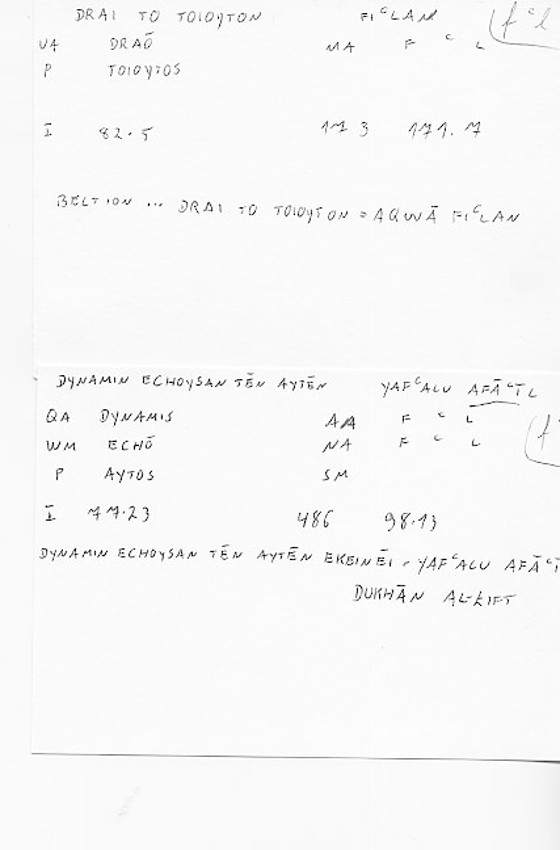 DRAI TO TOIOYTON FIᶜLAN fᶜl
VA DRAŌ MA F ᶜ L
P TOIOYTOS
I 82.5 173 171.7
BELTION ... DRAI TO TOIOYTON = AQWĀ FIᶜLAN
DYNAMIN ECHOYSAN TĒN AYTĒN YAFᶜALU AFĀᶜĪL
QA DYNAMIS AA F ᶜ L
WM ECHŌ NA F ᶜ L
P AYTOS SM
I 77.23 486 98.13
DYNAMIN ECHOYSAN TĒN AYTĒN EKEINĒI = YAFᶜALU AFĀᶜĪ
DUKHĀN AL-ḲIFT